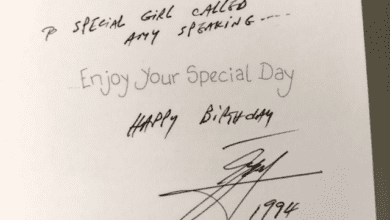 SPECIAL GIRL CALLED
AMY SPEAKING....
Enjoy Your Special Day
HAPPY BIRTHDAY
1994